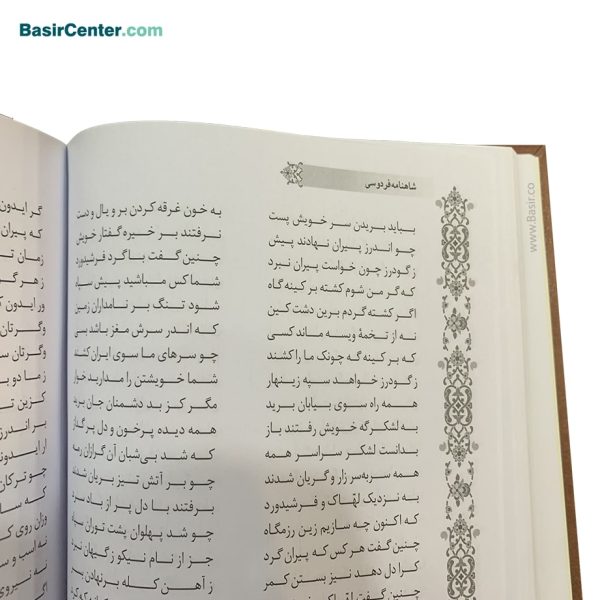 BasirCenter.com
شاهنامه فردوسی
www.Basir.co
بباید بریدن سر خویش پست به خون غرقه کردن بر و یال و دست
چو اندرز پیران نهادند پیش نرفتند بر خیره گفتار خویش
ز گودرز چون خواست پیران نبرد چنین گفت با گرد فرشیدورد
که گر من شوم کشته بر کینه گاه شما کس مباشید پیش سپاه
اگر کشته گردم برین دشت کین شود تنگ بر نامداران زمین
نه از تخمهٔ ویسه ماند کسی که اندر سرش مغز باشد بسی
که بر کینه گه چونک ما را کشند چو سرهای ما سوی ایران کشند
ز گودرز خواهد سپه زینهار شما خویشتن را مدارید خوار
همه راه سوی بیابان برید مگر کز بد دشمنان جان برید
به لشکرگه خویش رفتند باز همه دیده پرخون و دل پر گداز
بدانست لشکر سراسر همه که شد بی‌شبان آن گرازان رمه
همه سربه‌سر زار و گریان شدند چو بر آتش تیز بریان شدند
به نزدیک لهّاک و فرشیدورد برفتند با دل پر از باد سرد
که اکنون چه سازیم زین رزمگاه چو شد پهلوان پشت توران سپاه
چنین گفت هر کس که پیران گرد جز از نام نیکو ز گیهان نبرد
کرا دل دهد نیز بستن کمر ز آهن کله برنهادن
گر ایدون
که پیران
زمان
ز هر
ور ایدون
وگرتان
وگرتان
ز ما دو
کزین
بر اندرز
ار ایدون
چو ترکان
که
وزان روی
نه اسب و
نه نیروی